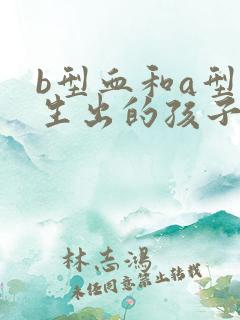 b型血和a型
生出的孩子
林志鸿
未经同意禁止转载